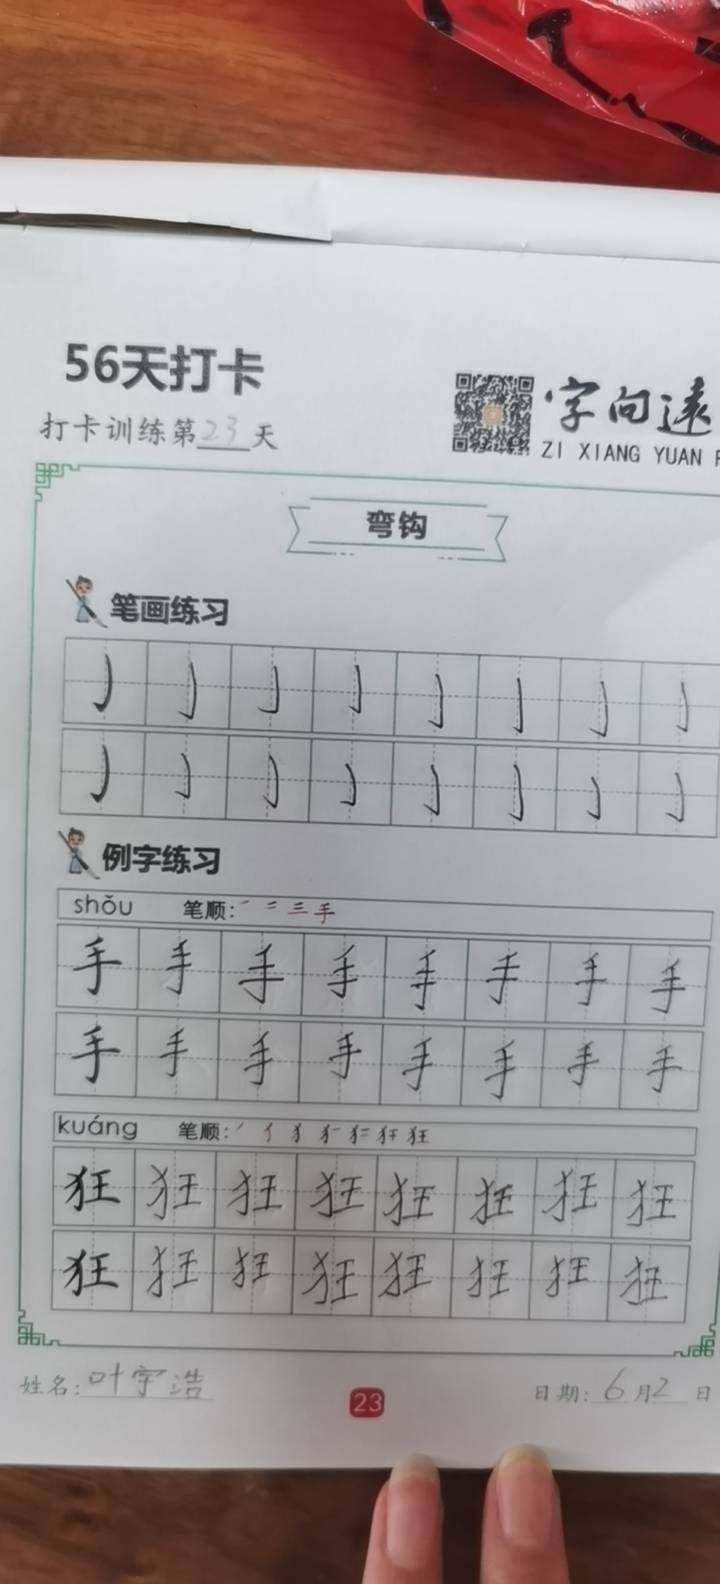 56天打卡
打卡训练第23天
字向远
ZI XIANG YUAN
弯钩
笔画练习
例字练习
shǒu 笔顺: 一 二 三 手
手 手 手 手 手 手 手 手
手 手 手 手 手 手 手 手
kuáng 笔顺:
狂 狂 狂 狂 狂 狂 狂 狂
狂 狂 狂 狂 狂 狂 狂 狂
姓名:叶宇浩
23
日期:6月2日